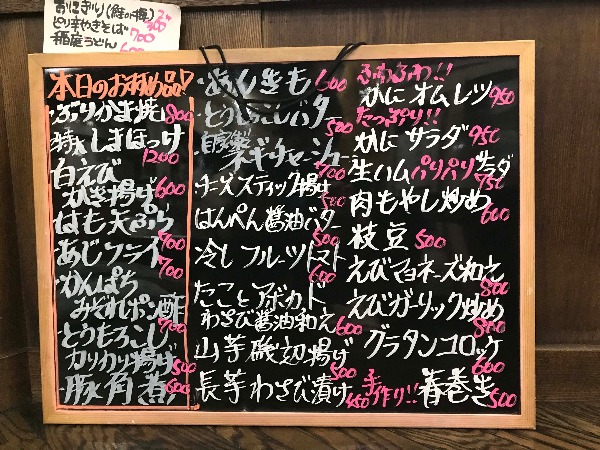 おにぎり(鮭or梅)
ピリ辛やきそば 700
稲庭うどん 600
本日のお薦め品!
ぶりかま焼 800
特大しまほっけ
1200
白えび
かき揚げ 600
はも天ぷら
900
あじフライ
700
かんぱち
みぞれポン酢
900
とうもろこし
カリカリ揚げ 500
豚角煮 600
あんきも 600
とうもろこしバター
500
自家製
ネギチャーシュー
700
チーズスティック揚げ
500
はんぺん醤油バター
500
冷しフルーツトマト
600
たことアボカド
わさび醤油和え 600
山芋磯辺揚げ
500
長芋わさび漬け
450
ふわふわ!!
かにオムレツ 950
たっぷり!!
かにサラダ 950
生ハムパリパリサラダ
750
肉もやし炒め
600
枝豆 500
えびマヨネーズ和え
800
えびガーリック炒め
800
グラタンコロッケ
600
手作り!!春巻き 500